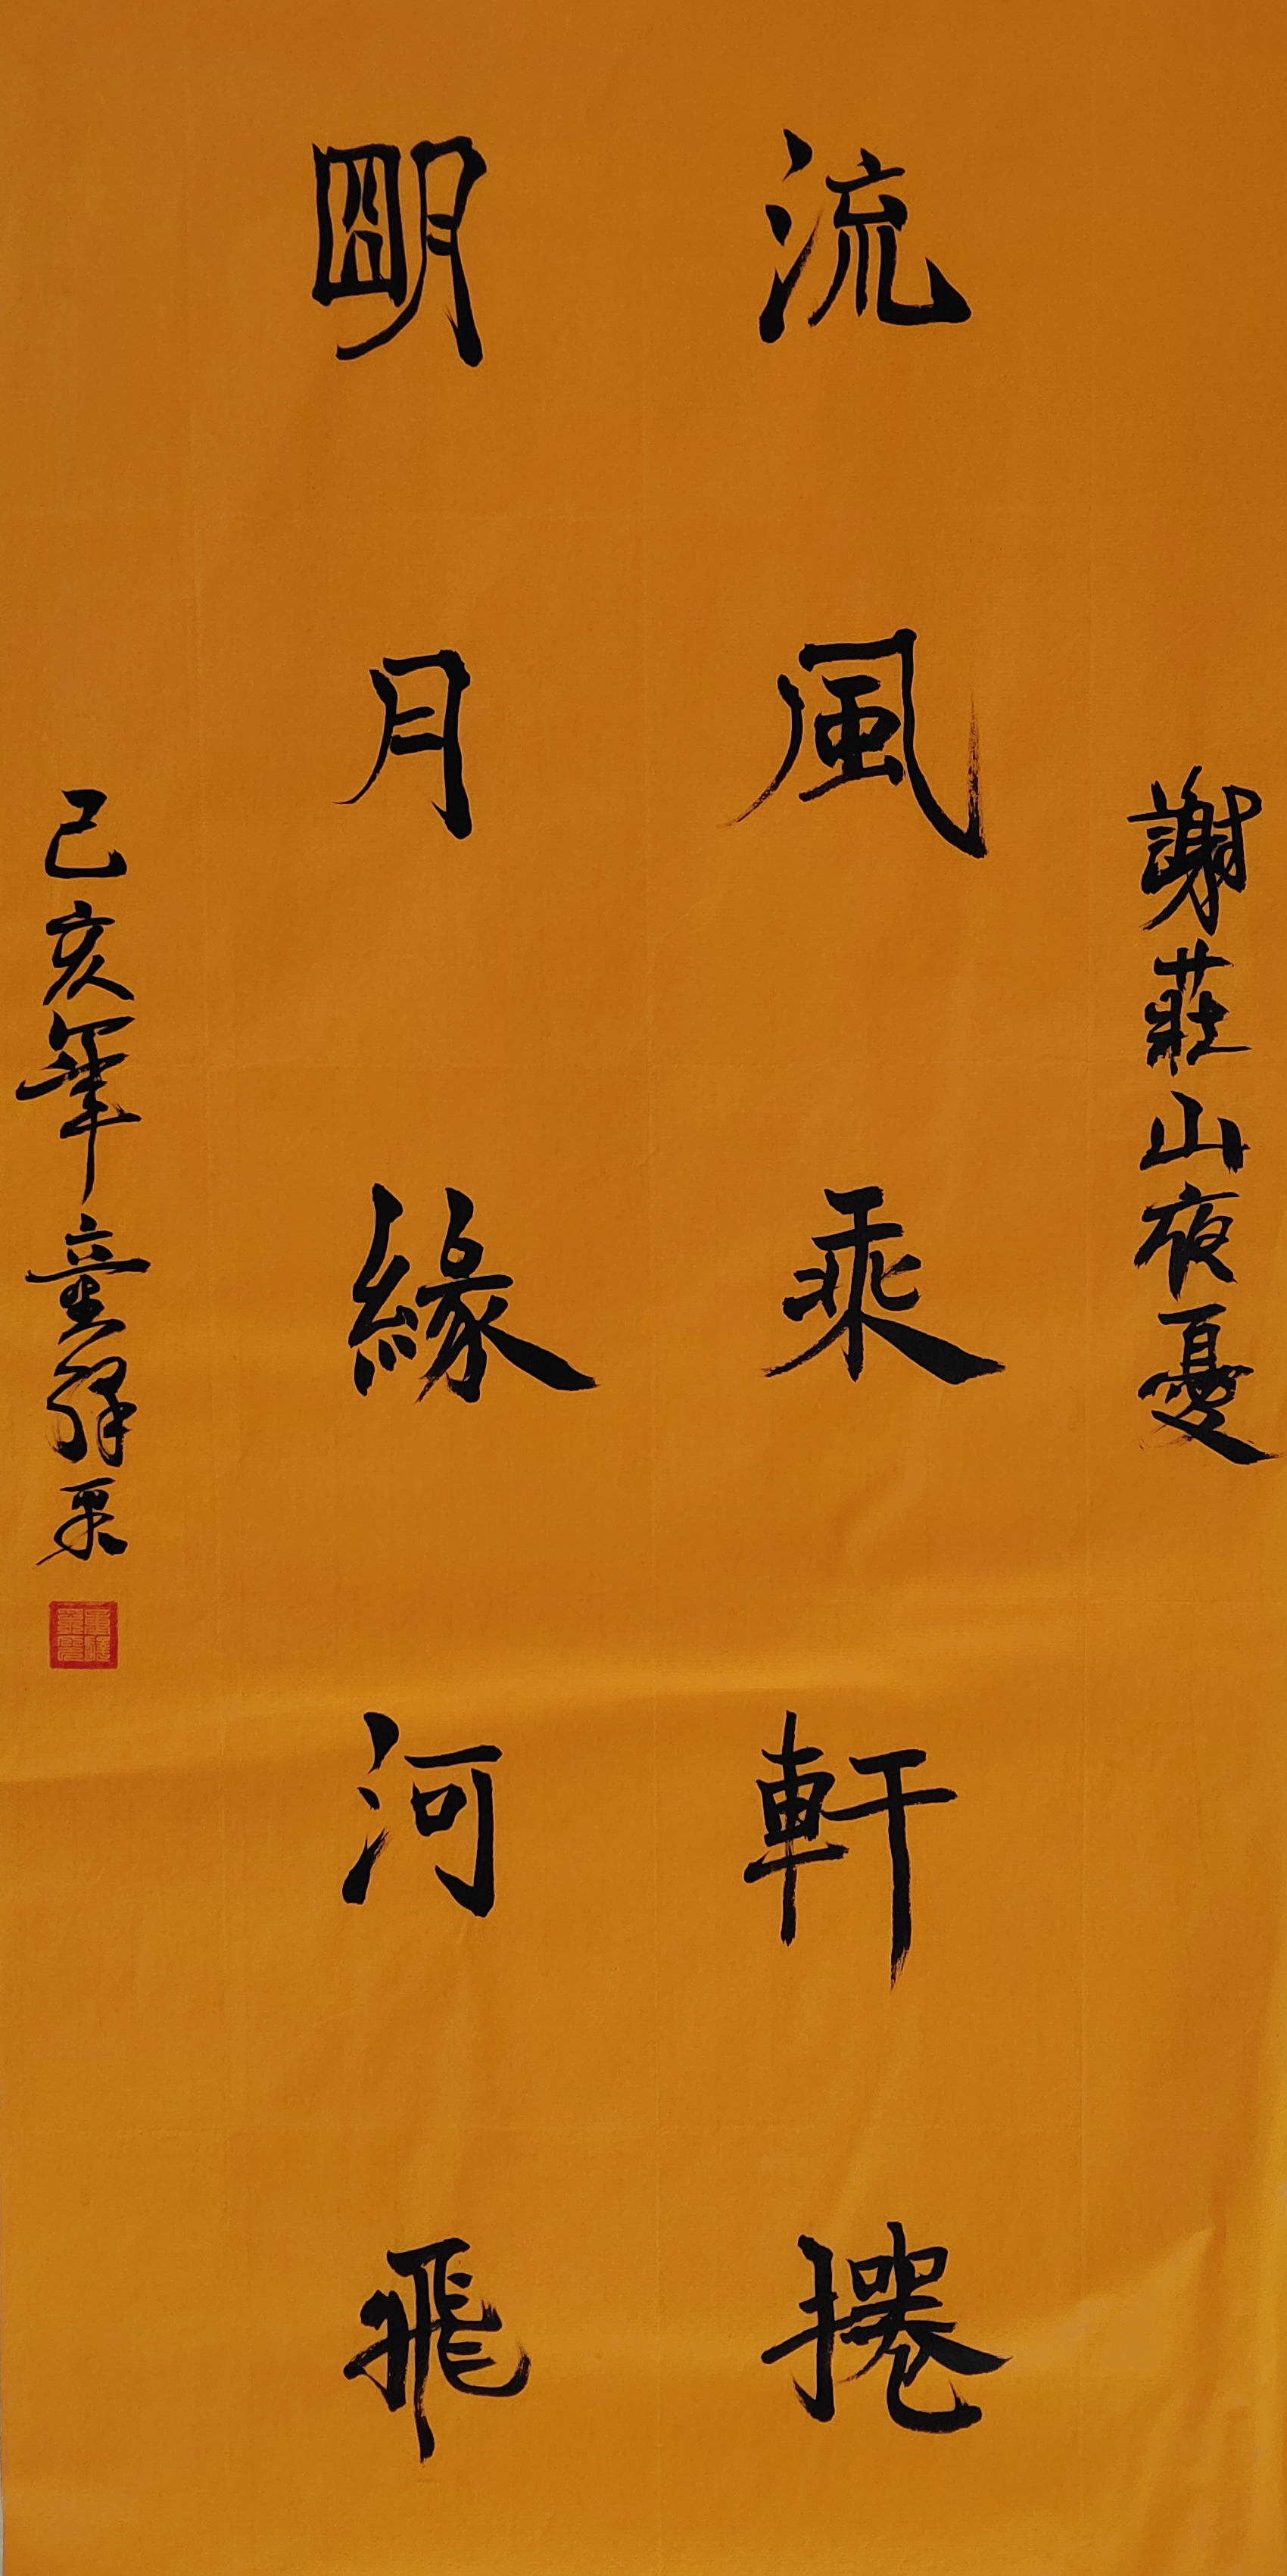 謝莊山夜憂
流風乘軒捲
朙月緣河飛
己亥年童釋采